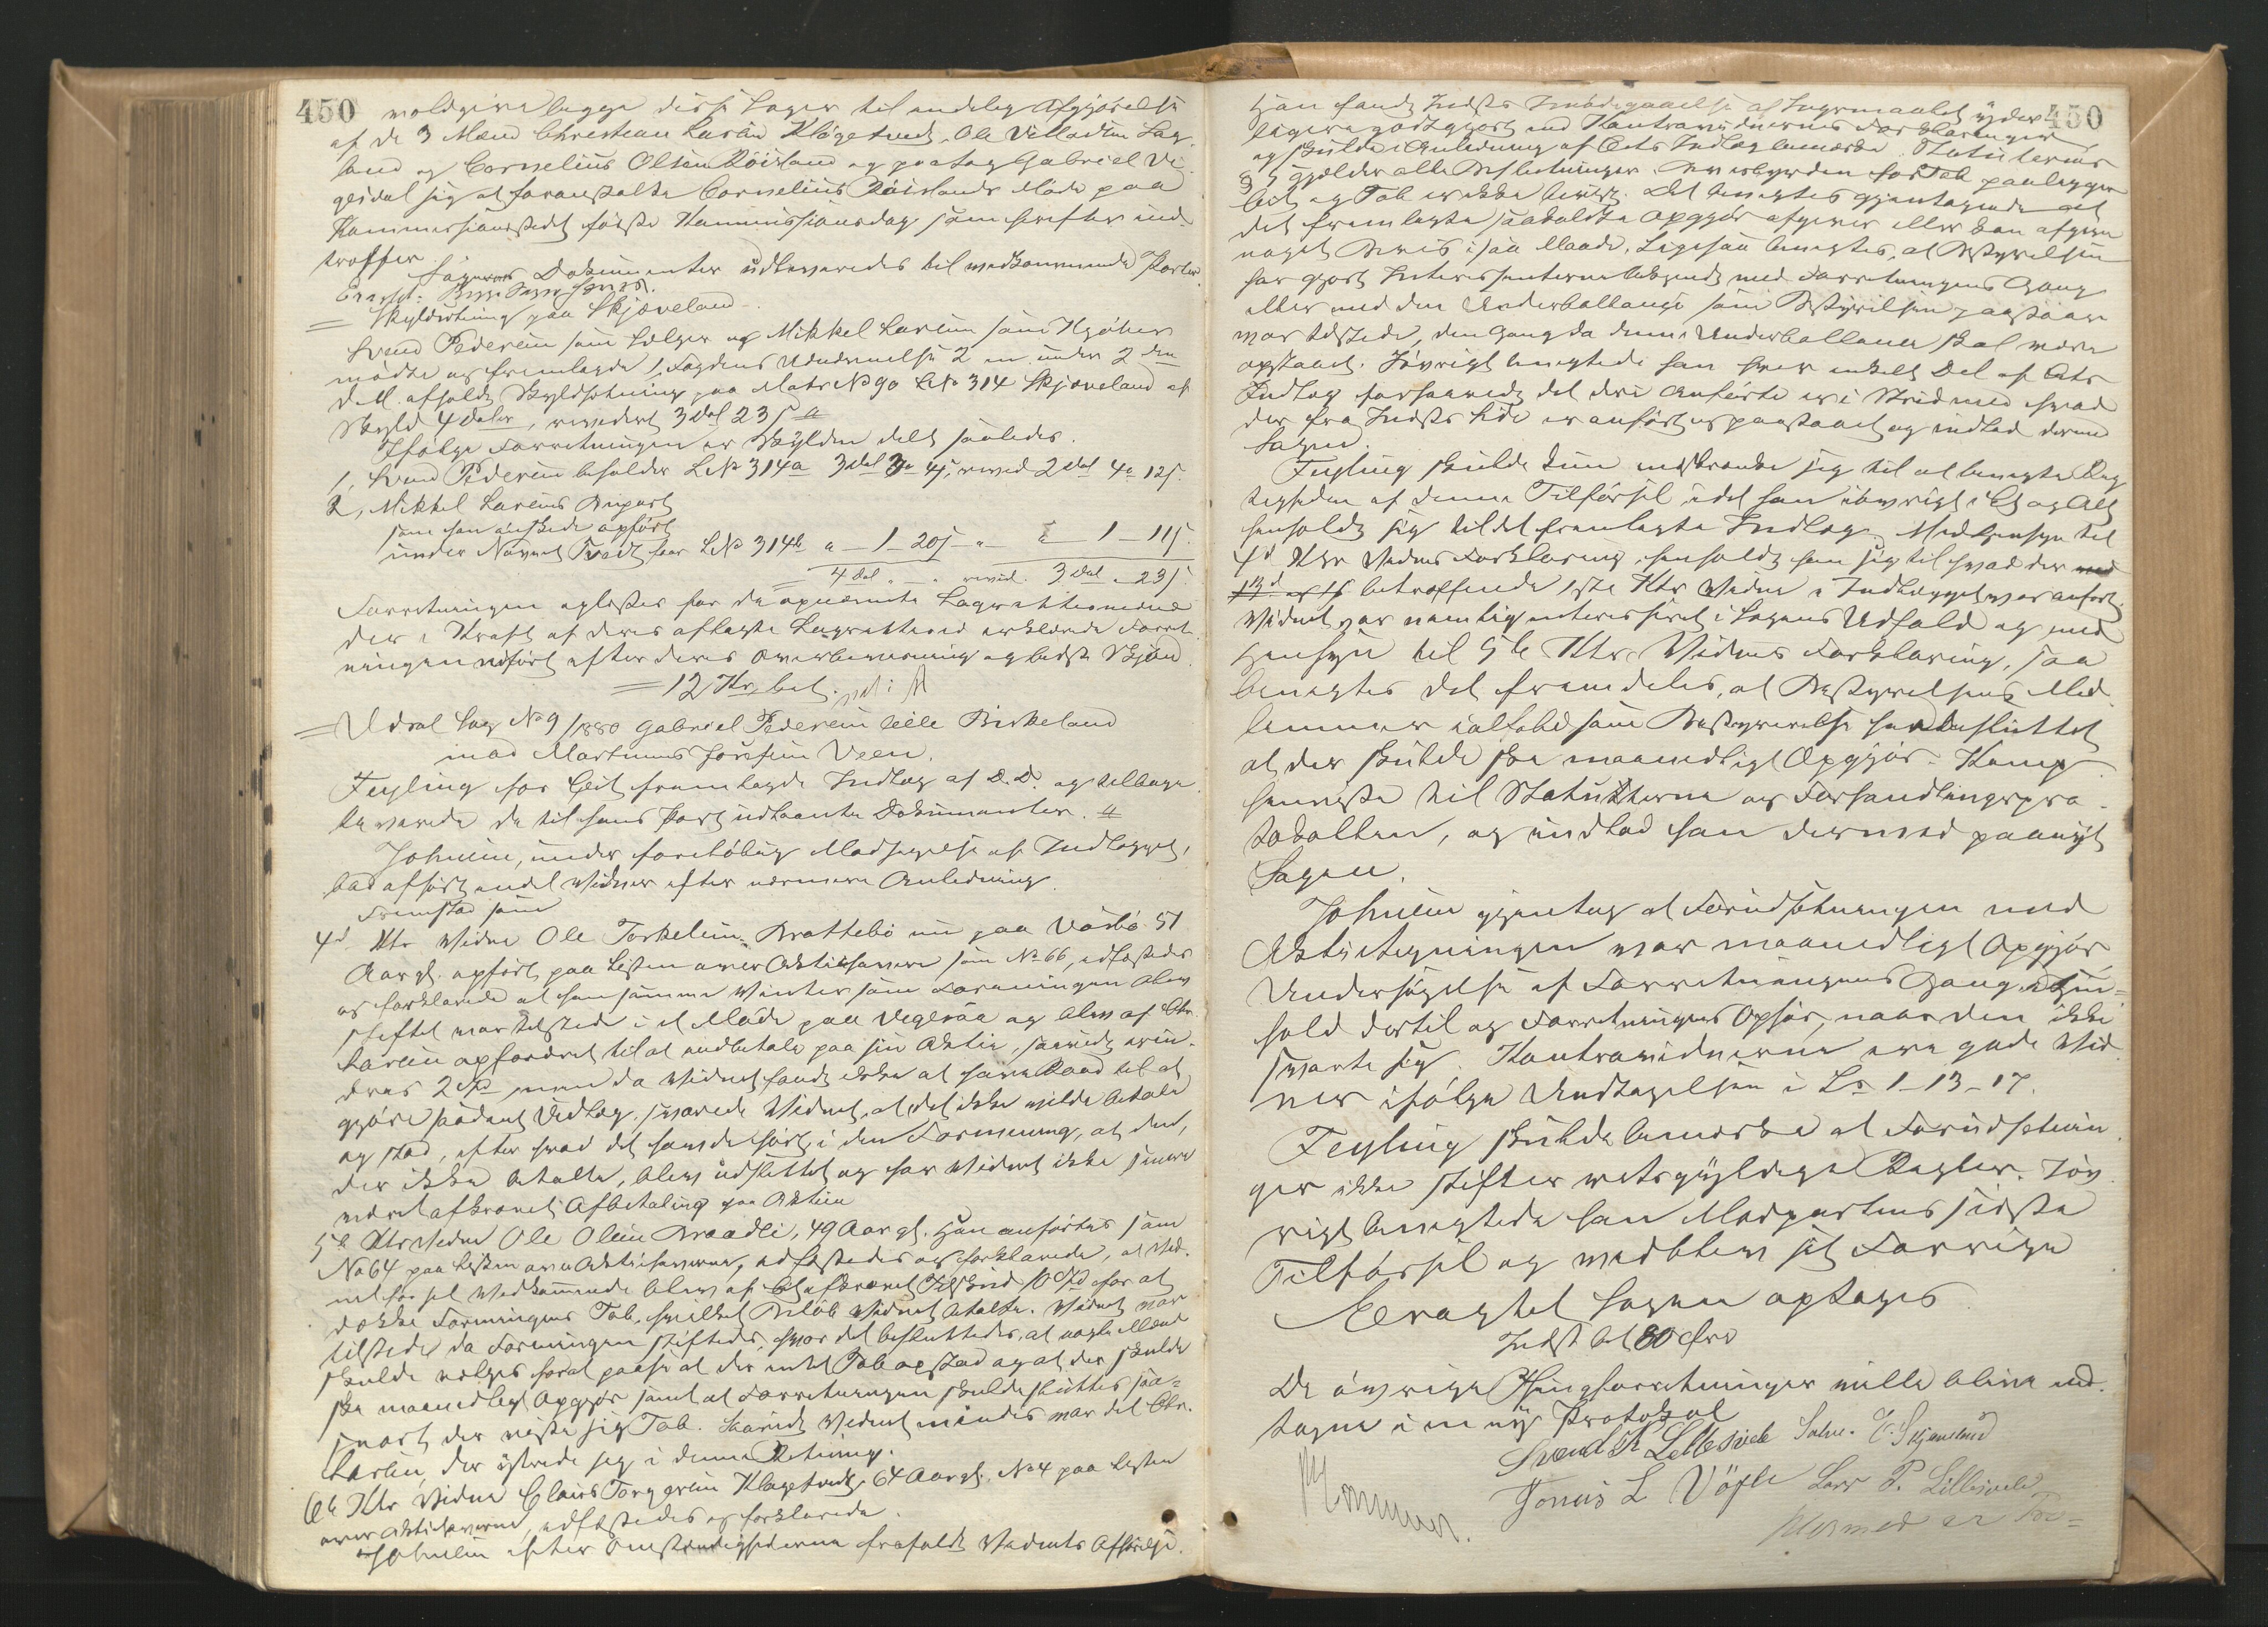 450
voldgive begge disse Sager til endelig Afgjørelse
af de 3 Mænd Christian Larsen Klögetvedt, Ole Villadsen Lag-
land og Cornelius Olsen Röisland og paatog Gabriel Vi-
gesdal sig at foranstalte Cornelius Röislands Møde paa
Kommissionsstedet første Kommissionsdag som herefter ind-
træffer.
Sagernes Dokumenter udleveredes til vedkommende Parter
Eragtet: Begge Sager hæves.
Skyldsetning paa Skjæveland
Svend Pedersen som Sælger og Mikkel Larsen som Kjøber
mødte og fremlagde 1, Fogdens Udnævnelse 2 en under 2den
ds. M. afholdt Skyldsetning paa Matr No 90 LNo 314 Skjæveland af
Skyld 4 Daler, revideret 3 Dal 23 s
Ifølge Forretningen er Skylden delt saaledes.
1, Svend Pedersen beholder LNo 314a 3 Dal 3 4 s, revid 2 Dal 4 12 s.
2, Mikkel Larsens Anpart
som han ønskede opført
under Navnet Tvedt faar LNo 314b " - 1 - 20 s - " 1 - 11 s.
4 Dal " - " revid. 3 Dal - 23 s.
Forretningen oplæstes for de opnævnte Lagrettesmænd
der i Kraft af deres aflagte Lagrettesed erklærede Forret-
ningen udført efter deres Overbevisning og bedste Skjøn.
= 12 Kr. bet.
= Udsat Sag No 9/1880 Gabriel Pedersen lille Birkeland
mod Martinus Josefsen Veen.
Feyling for Cit. fremlagde Indlæg af D. D. og tilbage-
leverede de til hans Part udlaante Dokumenter.
Johnsen, under foreløbig Modsigelse af Indlægget,
bad afhørt endel Vidner efter nærmere Anledning.
Fremstod som
4d Ktr Vidne Ole Torkelsen Brattebö nu paa Vasbö 51
Aar gl. opført paa Listen over Aktiehavere som No 66, edfæstedes
og forklarede at han samme Vinter som Foreningen blev
stiftet var tilstede i et Møde paa Vegeraa og blev af Chr.
Larsen opfordret til at indbetale paa sin Aktie, saavidt erin-
dres 2 Spd men da Vidnet fandt ikke at have Raad til at
gjøre saadant Udlæg, svarede Vidnet, at det ikke vilde betale
og stod, efter hvad det havde hørt, i den Formening, at den,
der ikke betalte, blev udslettet og har Vidnet ikke senere
været afkrævet Afbetaling paa Aktien
5te Ktr Vidne Ole Olsen Braadli, 49 Aar gl. Han anførtes som
No 64 paa Listen over Aktiehaverne, edfæstedes og forklarede, at Vid-
net for sit Vedkommende blev af Cit. afkrævet Tilskud 10 Spd for at
dække Foreningens Tab, hvilket Beløb Vidnet betalte. Vidnet var
tilstede da Foreningen stiftedes, hvor det besluttedes, at nogle Mænd
skulde vælges for at paase at der intet Tab opstod og at der skulde
ske maanedligt Opgjør samt at Forretningen skulde sluttes saa-
snart der viste sig Tab. Saavidt Vidnet mindes var det Chr.
Larsen, der yttrede sig i denne Retning.
6te Ktr Vidne Claus Torgersen Klagetvedt, 64 Aar gl. No 4 paa Listen
over Aktiehaverne, edfæstedes og forklarede.
Johnsen efter Omstændighederne frafaldt Vidnets Afhørelse.
450
Han fandt Indst. Imødegaaelse af Søgsmaalet yder-
ligere godtgjort ved Kontravidnernes Forklaringer
og skulde i Anledning af Cits Indlæg bemærke. Statuternes
§ 5 gjælder alle Beslutninger. Bevisbyrden for Tab paaligger
Cit. og Tab er ikke bevist. Det benegtes gjentagende at
det fremlagte saakaldte Opgjør afgiver eller kan afgive
noget Bevis i saa Maade. Ligesaa benegtes, at Bestyrelsen
har gjort Interessenterne bekjendt med Forretningens Gang
eller med den Underballance som Bestyrelsen paastaar
var tilstede, dengang da denne Underballance skal være
opstaaet. Iøvrigt benegtede han hver enkelt Del af Cits
Indlæg forsaavidt det deri Anførte er i Strid med hvad
der fra Indsts Side er anført og paastaaet og indlod dermed
Sagen.
Feyling skulde kun indskrænke sig til at benegte Rig-
tigheden af denne Tilførsel idet han iøvrigt i Et og Alt
henholdt sig til det fremlagte Indlæg. Med Hensyn til
4d Ktr Vidnes Forklaring henholdt han sig til hvad der
betræffende 1ste Ktr Vidne i Indlægget var anført.
Vidnet var nemlig interesseret i Sagens Udfald og med
Hensyn til 5te Ktr. Vidnes Forklaring, saa
benegtes det fremdeles, at Bestyrelsens Med-
lemmer ialfald som Bestyrelse har besluttet
at der skulde ske maanedligt Opgjør. Han
henviste til Statutterne og Forhandlingspro-
tokollen, og indlod han dermed paanyt
Sagen.
Johnsen gjentog at Forudsetningen ved
Aktietegningen var maanedligt Opgjør,
Undersøgelse af Forretningens Gang, i Hen-
hold dertil og Forretningens Ophør, naar den ikke
svarte sig. Kontravidnerne ere gode Vid-
ner ifølge Undtagelsen i Ls 1-13-17.
Feyling skulde bemærke at Forudsetnin-
ger ikke stifter retsgyldige Regler. Iøv-
rigt benegtede han Modpartens sidste
Tilførsel og vedblev sit Forrige
Eeragtet Sagen optages.
Indst bet 80 Øre
De øvrige Thingforretninger ville blive ind-
tagne i en ny Protokol
Svend P. Lillesviele Salve. E. Skjæveland
Jonas L Vögle Lars P. Lillesviele
Hermed er Pro=